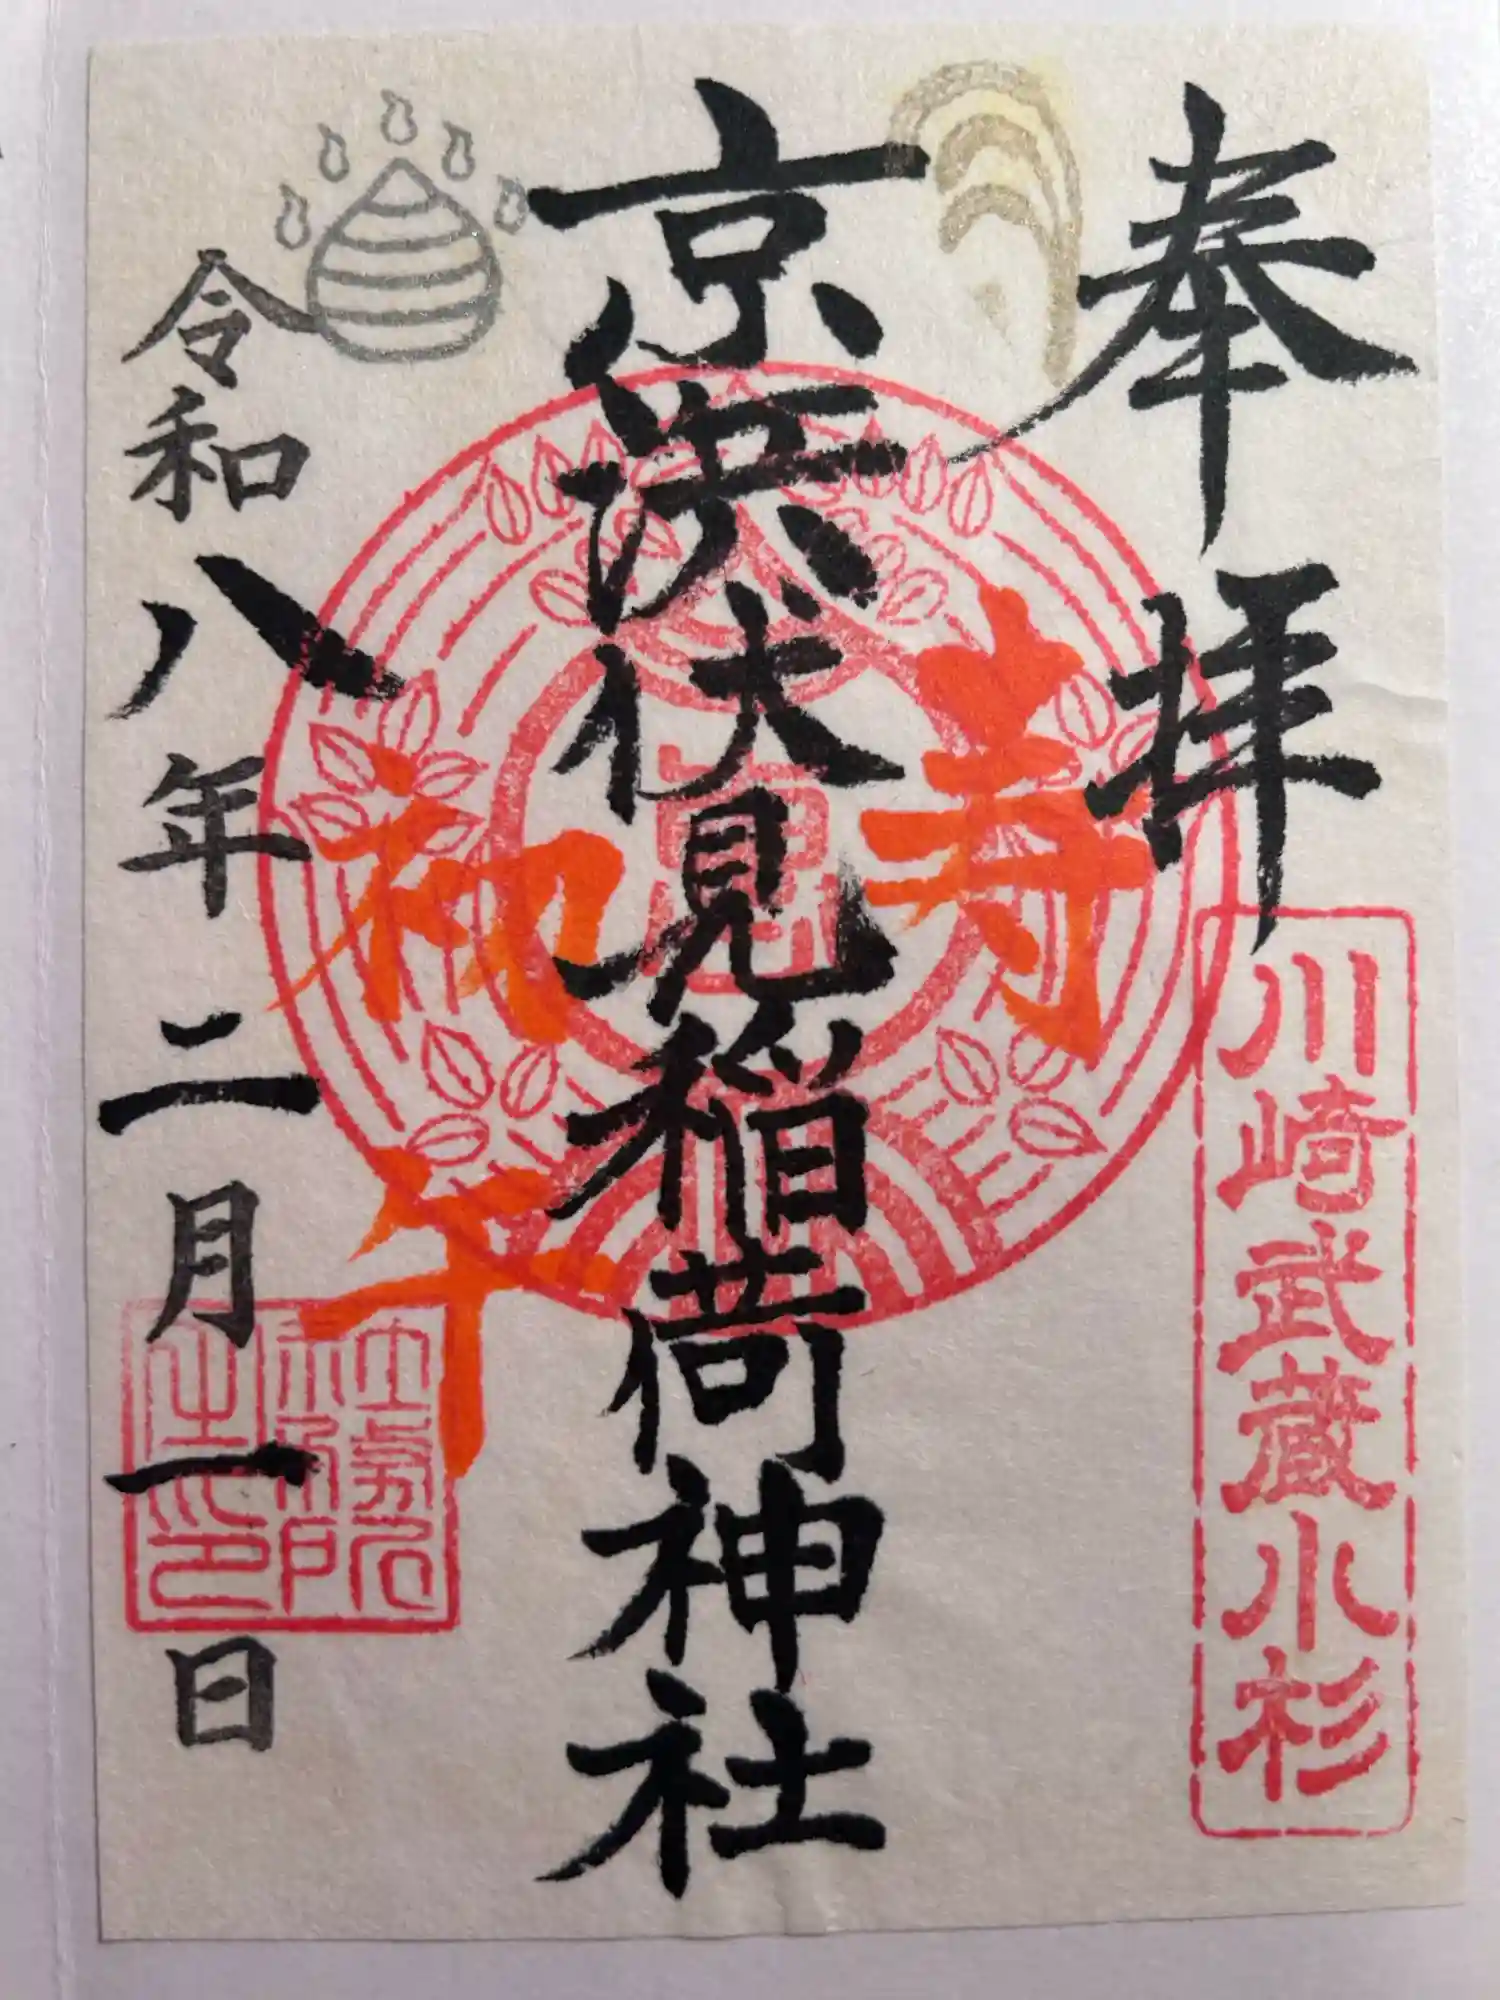 奉拝
川崎武蔵小杉
寿
京濱伏見稲荷神社
初午
令和八年二月一日
社務所之印